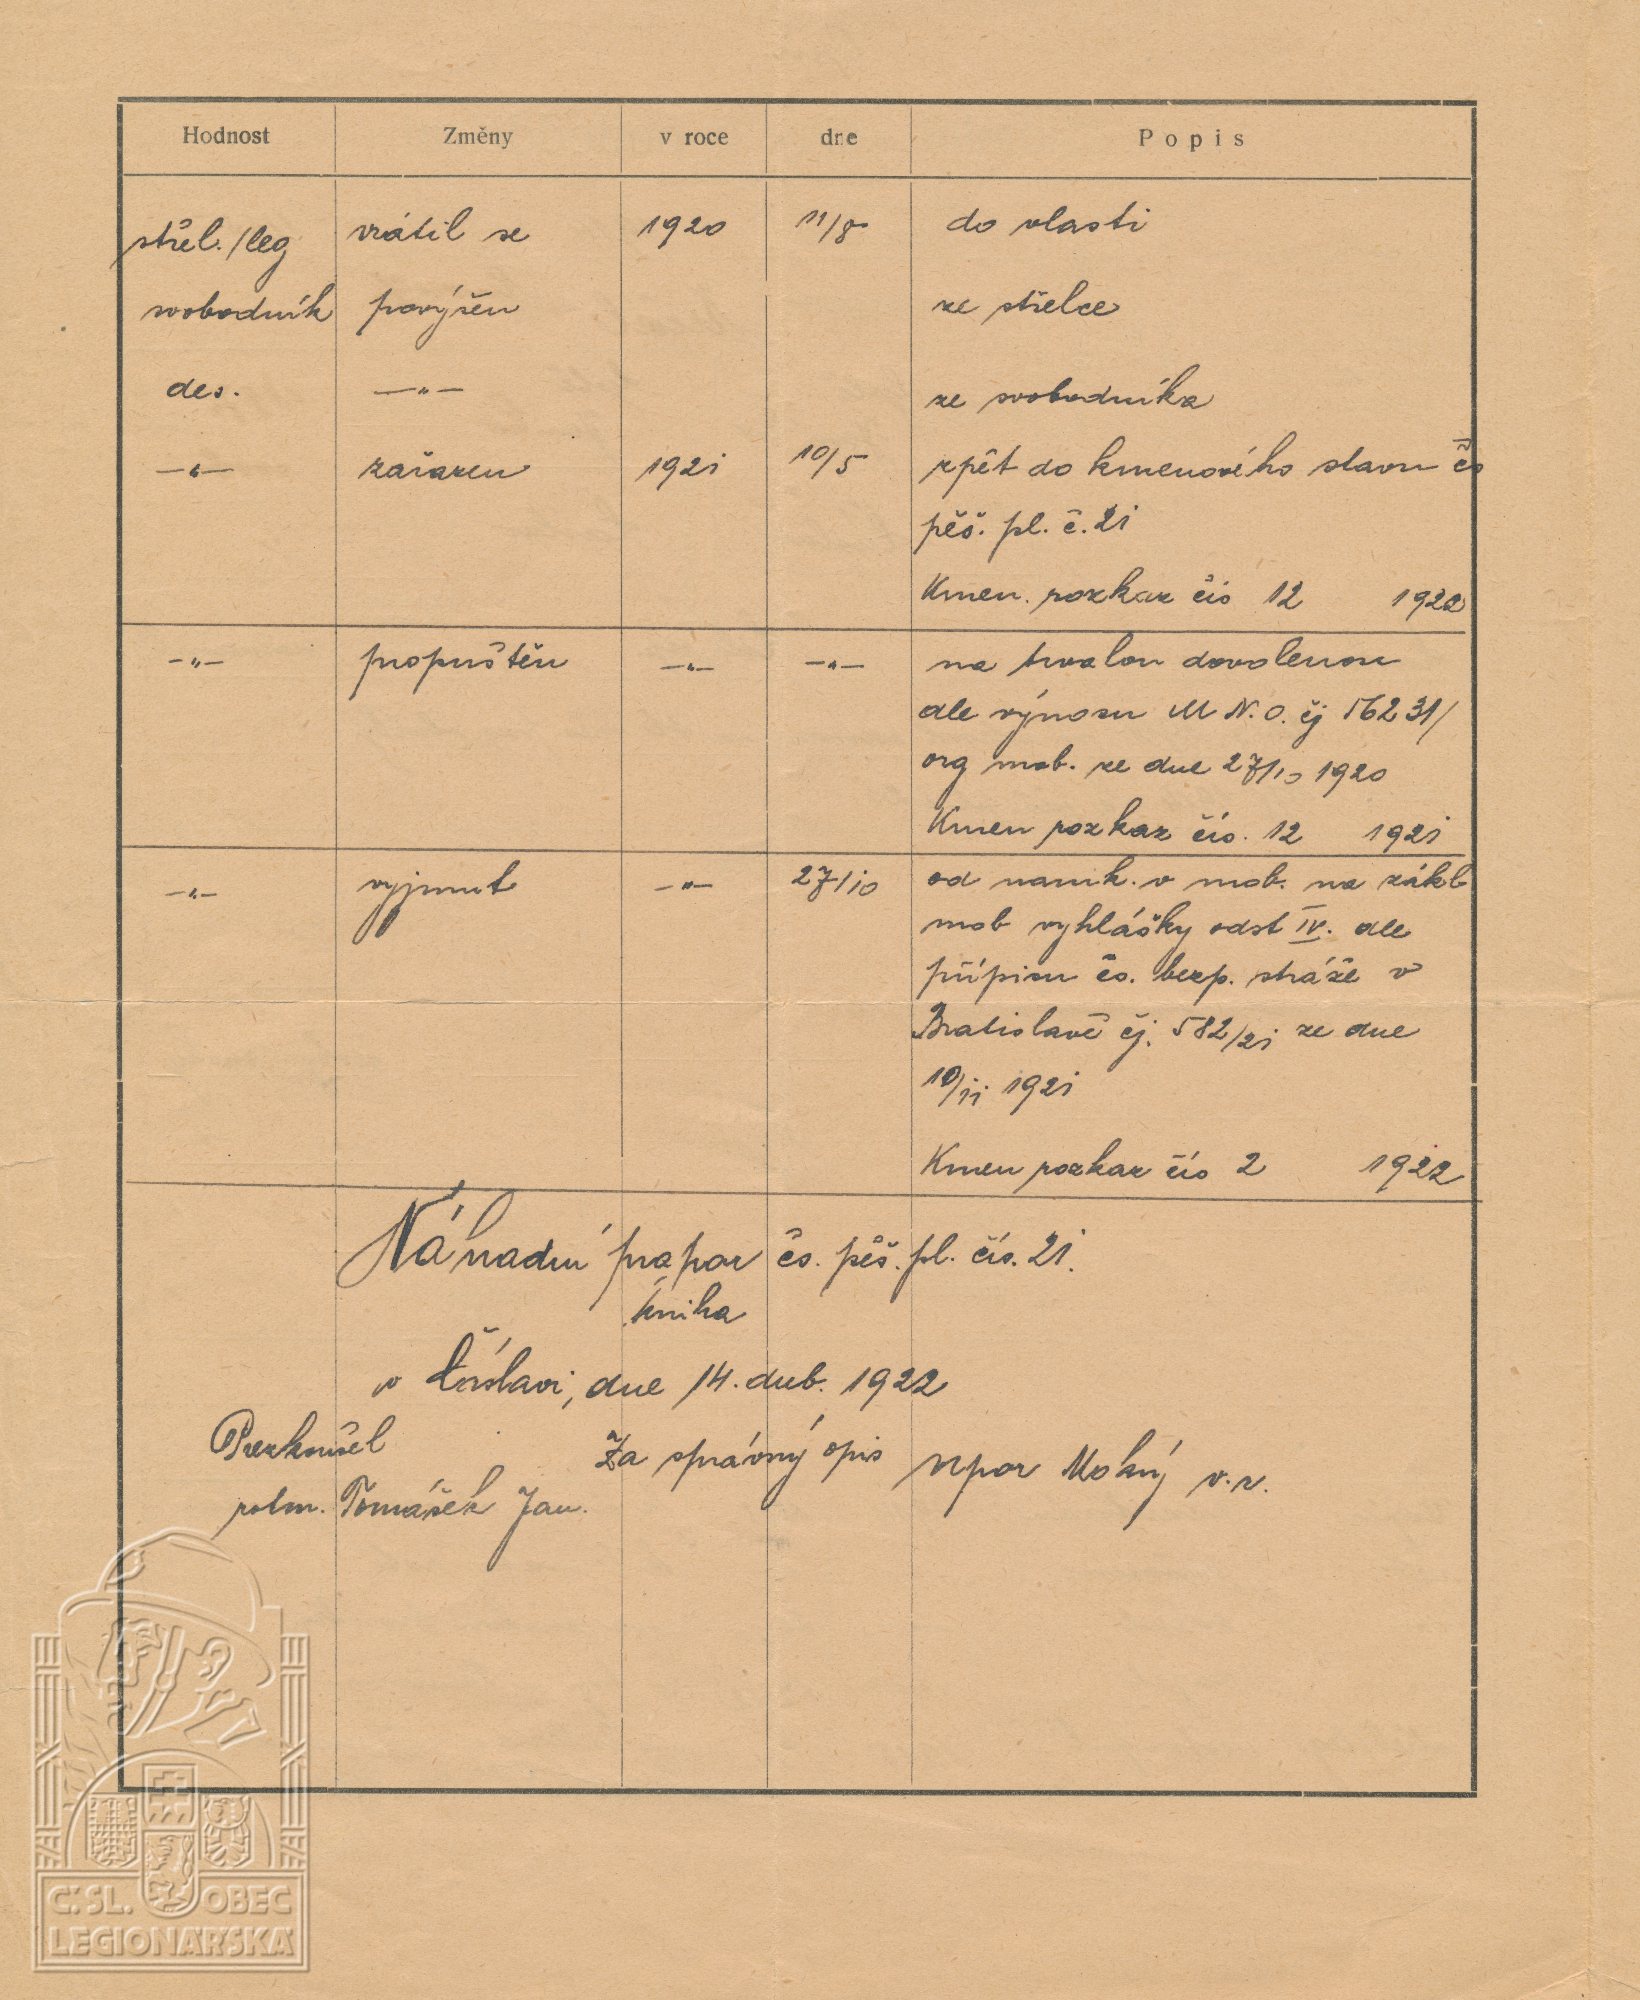 Hodnost Změny v roce dne Popis
střel./leg vrátil se 1920 11/8 do vlasti
svobodník povýšen ze střelce
des. —„— ze svobodníka
—„— zařazen 1921 10/5 zpět do kmenového stavu čs
pěš. pl. č. 21
Kmen. rozkaz čís 12 1922
—„— propuštěn —„— —„— na trvalou dovolenou
dle výnosu M N.O. čj 56231/
org mob. ze dne 27/10 1920
Kmen rozkaz čís. 12 1921
—„— vyjmut —„— 27/10 od naruk. v mob. na zákl
mob vyhlášky odst IV. dle
přípisu čs. bezp. stráže v
Bratislavě čj. 582/21 ze dne
10/11 1921
Kmen rozkaz čís 2 1922
Náhradní prapor čs. pěš. pl. čís. 21.
kniha
v Čáslavi, dne 14. dub. 1922
Přezkoušel Za správný opis npor Mokný v.r.
rotm. Tomášek Jan.
Č.SL. OBEC
LEGIONÁŘSKÁ